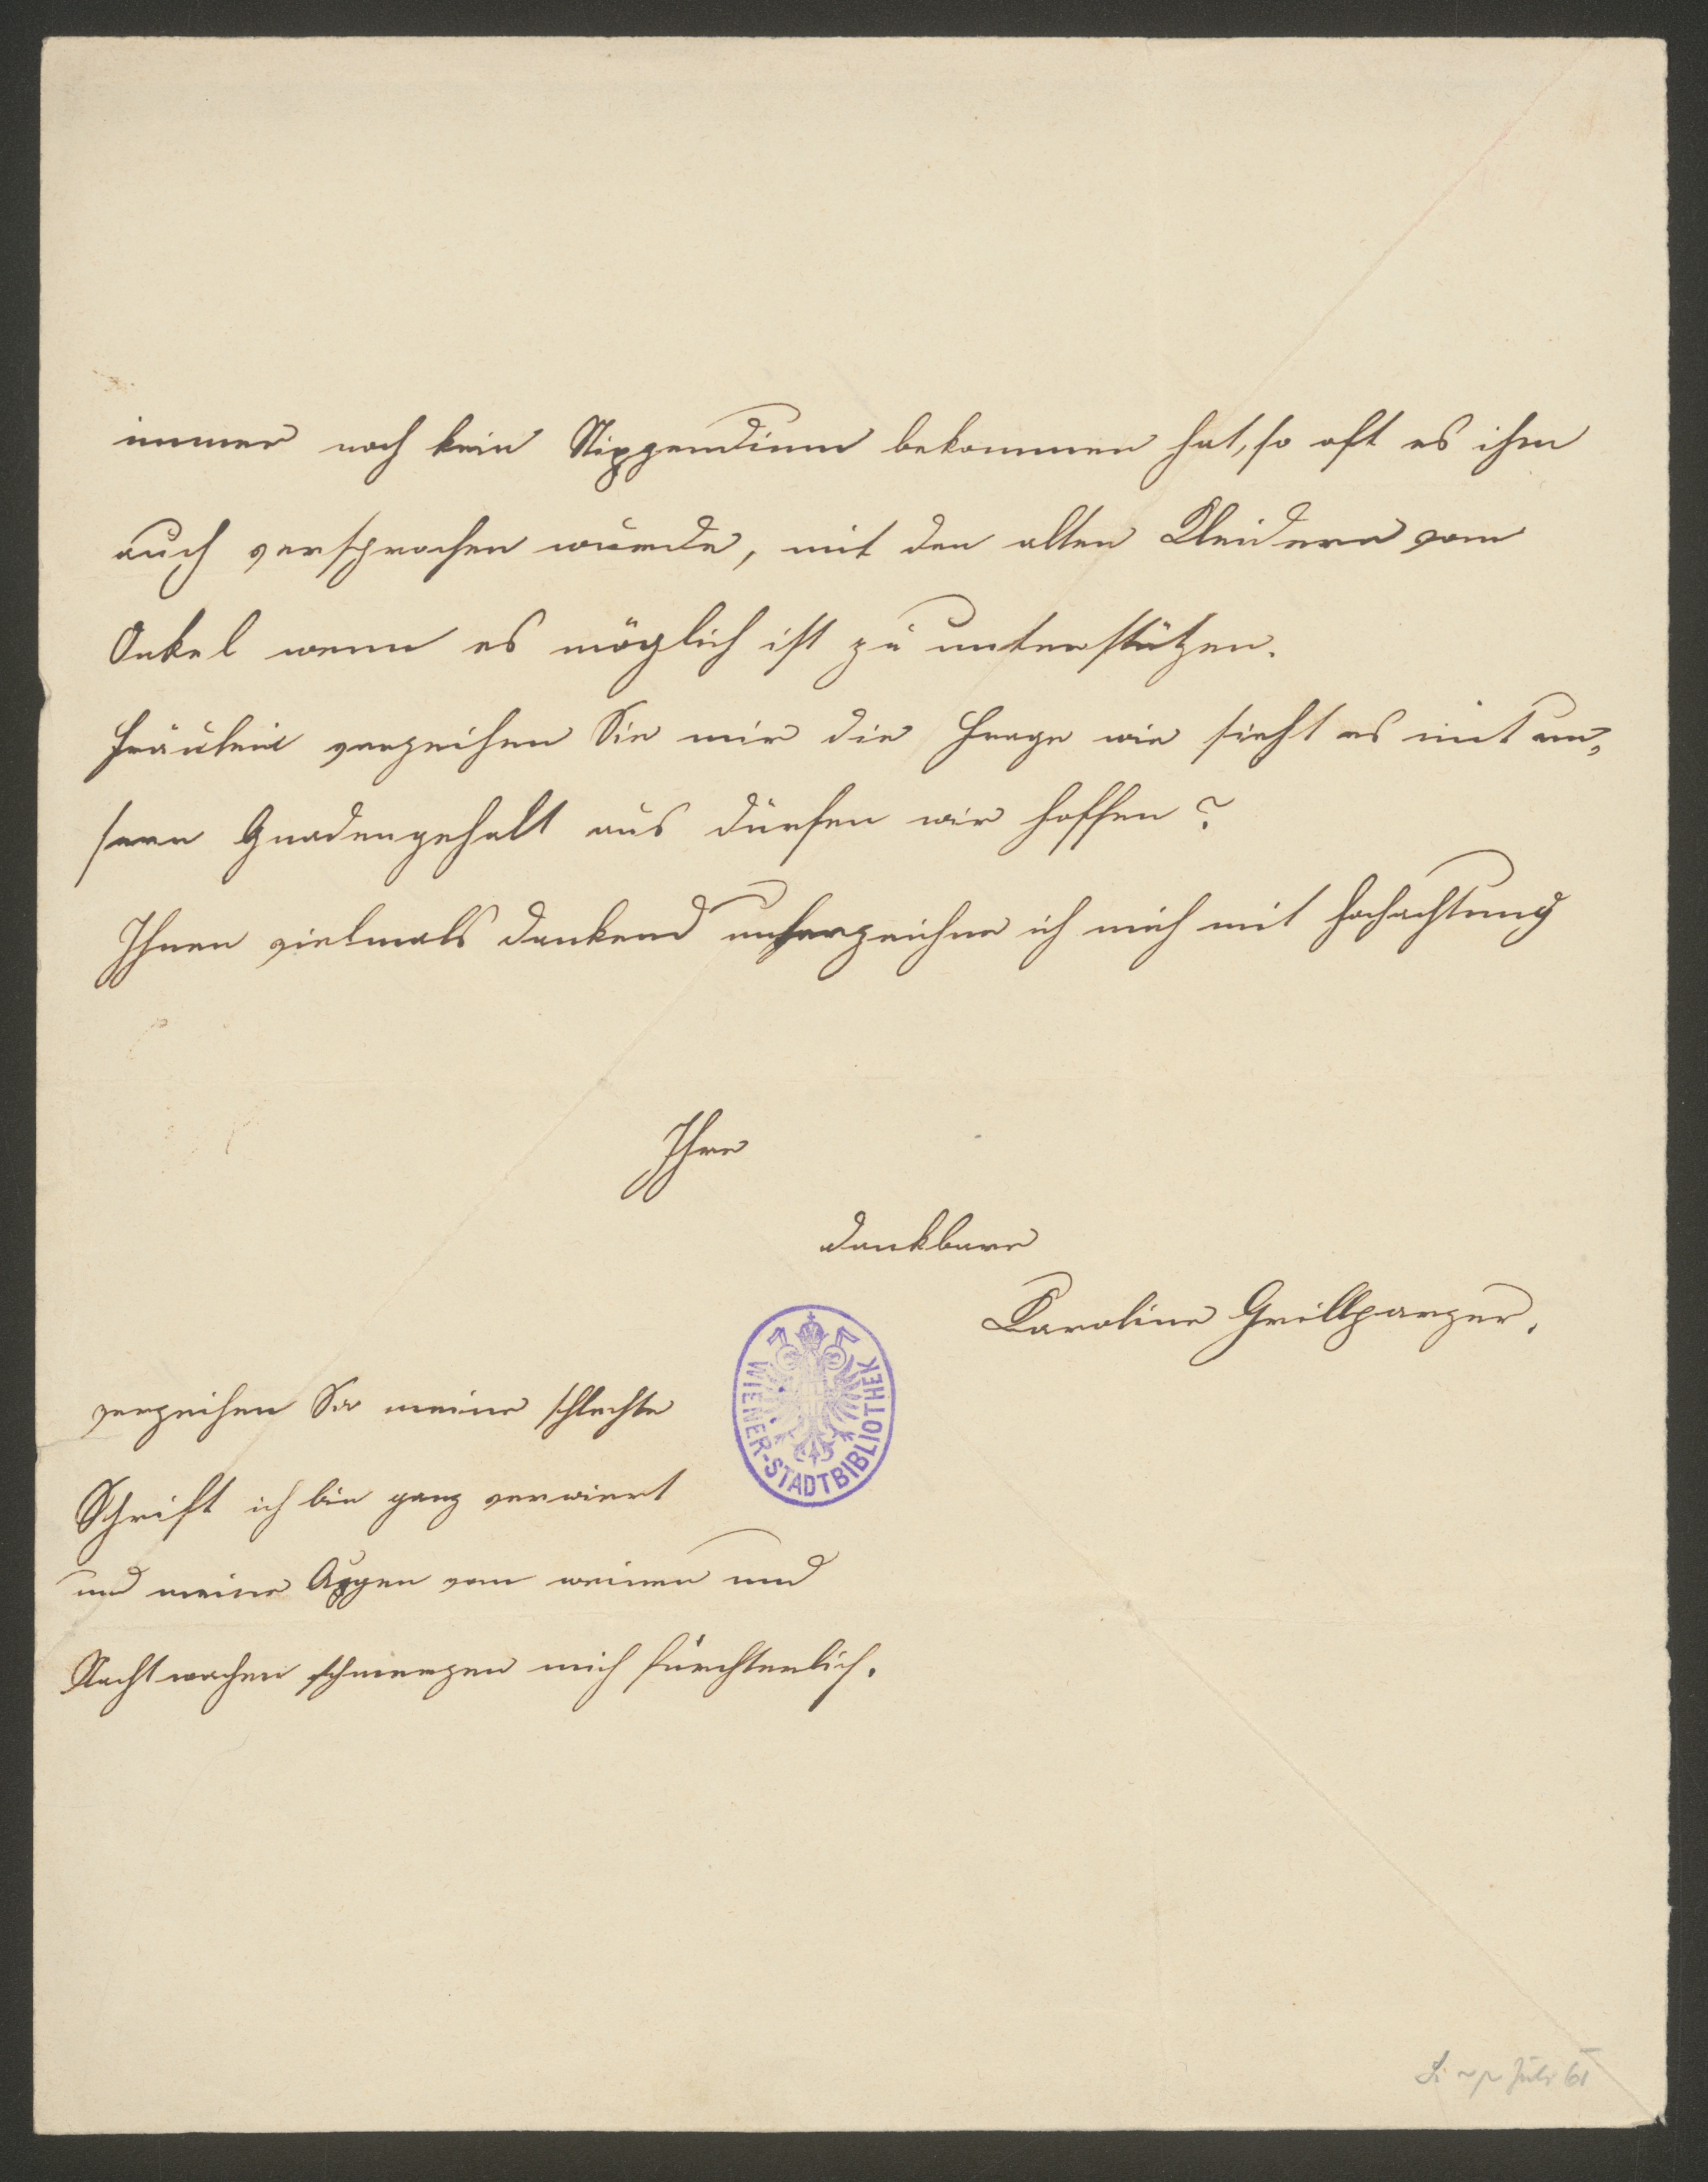 immer noch kein Stippendium bekommen hat, so oft es ihm
auch versprochen wurde, mit den alten Kleidern vom
Onkel wenn es möglich ist zu unterstützen.
Fräulein verzeihen Sie mir die Frage wie sieht es mit un„
sern Gnadengehalt aus dürfen wir hoffen?
Ihnen vielmals dankend unterzeichne ich mich mit Hochachtung
Ihre
dankbare
Karoline Grillparzer.
WIENER-STADTBIBLIOTHEK
verzeihen Sie meine schlechte
Schrift ich bin ganz verwiert
und meine Augen vom weinen und
Nachtwachen schmerzen mich fürchterlich.